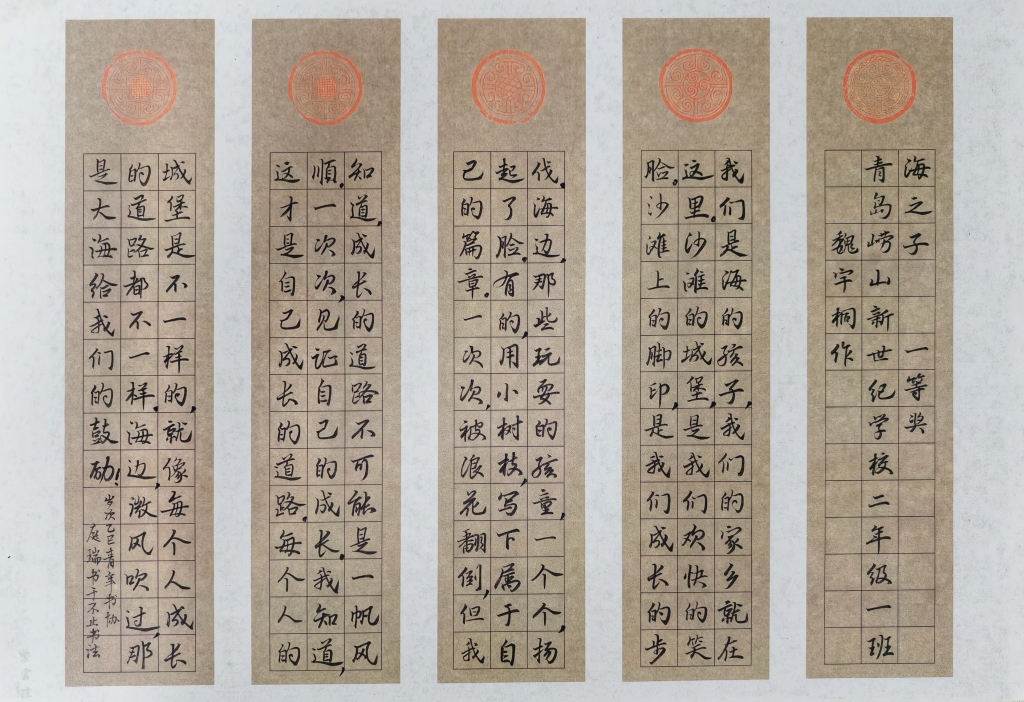 海之子　一等奖
青岛崂山新世纪学校二年级一班
魏宇桐作
我们是海的孩子,我们的家乡就在
这里。沙滩的城堡,是我们欢快的笑
脸。沙滩上的脚印,是我们成长的步
伐。海边,那些玩耍的孩童,一个个,扬
起了脸。有的,用小树枝,写下属于自
己的篇章。一次次,被浪花翻倒,但我
知道,成长的道路不可能是一帆风
順。一次次,见证自己的成长。我知道,
这才是自己成长的道路。每个人的
城堡是不一样的,就像每个人成长
的道路都不一样。海边,微风吹过,那
是大海给我们的鼓励!
岁次乙巳青年书协
庭瑞书于不止书法